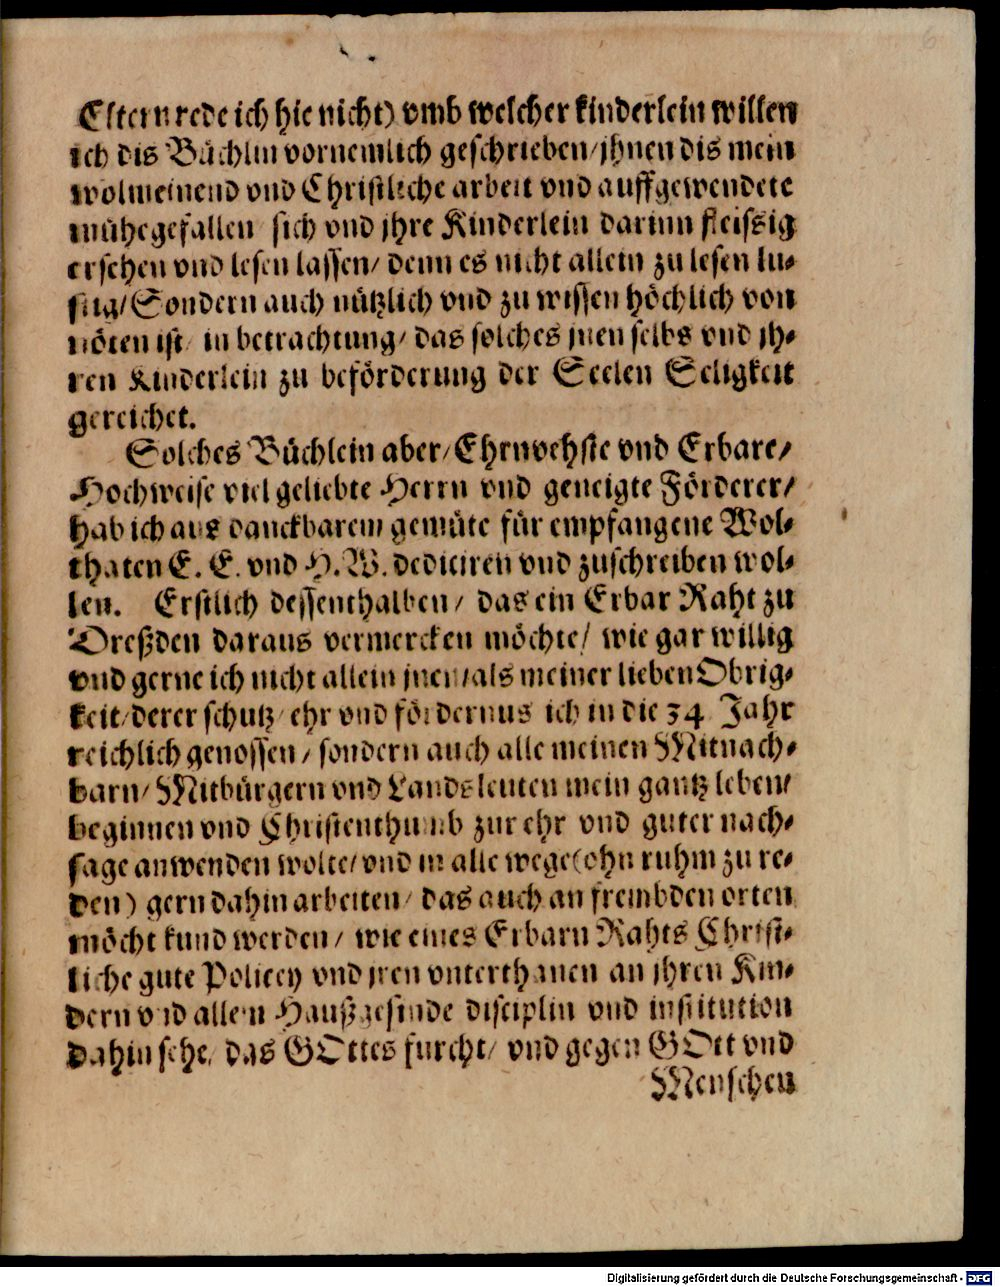 Eltern rede ich hie nicht) vmb welcher kinderlein willen
ich dis Büchlin vornemlich geschrieben/ jhnen dis mein
wolmeinend vnd Christliche arbeit vnd auffgewendete
mühe gefallen sich vnd jhre Kinderlein darinn fleissig
ersehen vnd lesen lassen/ denn es nicht allein zu lesen lu-
stig/ Sondern auch nützlich vnd zu wissen höchlich von
nöten ist/ in betrachtung/ das solches jnen selbs vnd jh-
ren Kinderlein zu beförderung der Seelen Seligkeit
gereichet.
Solches Büchlein aber/ Ehrnvehste vnd Erbare/
Hochweise viel geliebte Herrn vnd geneigte Förderer/
hab ich aus danckbarem gemüte für empfangene Wol-
thaten E. E. vnd H. W. dediciren vnd zuschreiben wol-
len. Erstlich dessenthalben/ das ein Erbar Raht zu
Dreßden daraus vermercken möchte/ wie gar willig
vnd gerne ich nicht allein jnen/ als meiner lieben Obrig-
keit/ derer schutz/ ehr vnd fördernus ich in die 34 Jahr
reichlich genossen/ sondern auch alle meinen Mitnach-
barn/ Mitbürgern vnd Landsleuten mein gantz leben/
beginnen vnd Christenthumb zur ehr vnd guter nach-
sage anwenden wolte/ vnd in alle wege (ohn ruhm zu re-
den) gern dahin arbeiten/ das auch an frembden orten
möcht kund werden/ wie eines Erbarn Rahts Christ-
liche gute Policey vnd jren vnterthanen an jhren Kin-
dern vnd allem Haußgesinde disciplin vnd institution
dahin sehe, das GOttes furcht/ vnd gegen GOtt vnd
Menschen
6
Digitalisierung gefördert durch die Deutsche Forschungsgemeinschaft - DFG